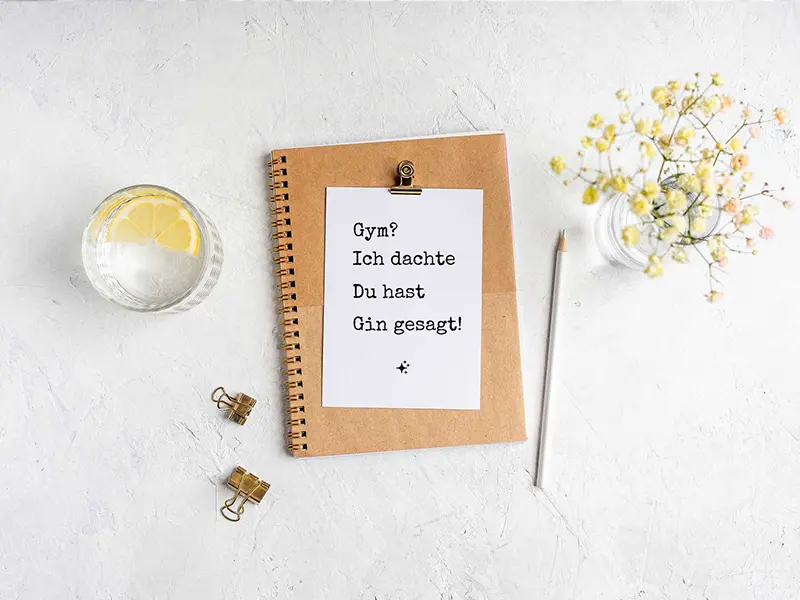 Gym?
Ich dachte
Du hast
Gin gesagt!